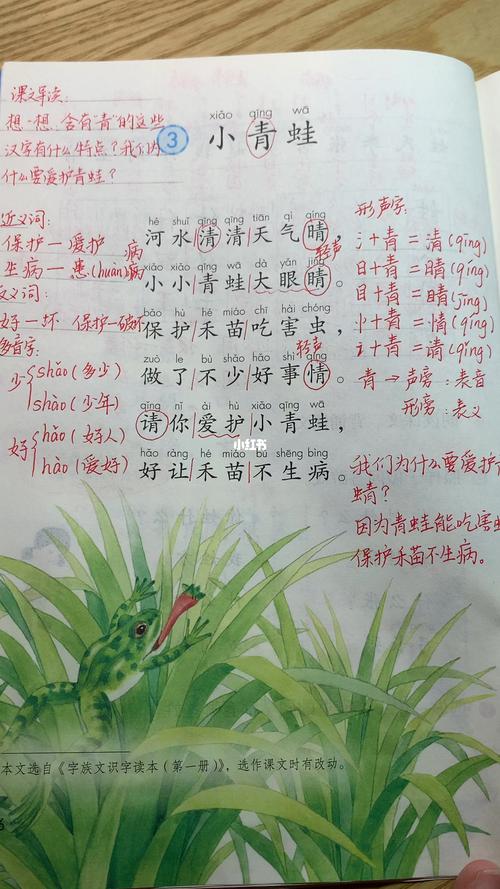 课文导读:
想一想,含有"青"的这些
汉字有什么特点?我们为
什么要爱护青蛙?
xiǎo qīng wā
3 小青蛙
近义词:
保护—爱护
生病—患(huàn)病
反义词:
好—坏 保护—破坏
多音字:
少 shǎo(多少)
shào(少年)
好 hǎo(好人)
hào(爱好)
hé shuǐ qīng qīng tiān qì qíng
河水清清天气晴,
轻声
xiǎo xiǎo qīng wā dà yǎn jīng
小小青蛙大眼睛。
bǎo hù hé miáo chī hài chóng
保护禾苗吃害虫,
轻声
zuò le bù shǎo hǎo shì qing
做了不少好事情。
qǐng nǐ ài hù xiǎo qīng wā
请你爱护小青蛙,
hǎo ràng hé miáo bù shēng bìng
好让禾苗不生病。
小红书
形声字:
氵+青=清(qīng)
日+青=晴(qíng)
目+青=睛(jīng)
忄+青=情(qíng)
讠+青=请(qǐng)
青→声旁:表音
形旁:表义
我们为什么要爱护
蜻?
因为青蛙能吃害虫
保护禾苗不生病。
本文选自《字族文识字读本(第一册)》,选作课文时有改动。
6